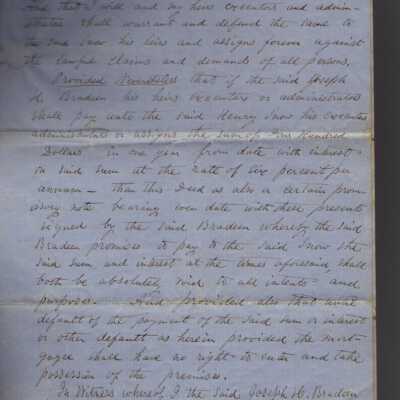 And that I will and my heirs executors and admin-
istrators shall warrant and defend the same to
the said Snow his heirs and assigns forever against
the lawful claims and demands of all persons.
Provided Nevertheless that if the said Joseph
H. Braden his heirs executors or administrators
shall pay unto the said Henry Snow his executors
administrators or assigns the sum of Hundred
Dollars in one year from date with interest
on said sum at the rate of per cent per
annum - then this Deed as also a certain prom-
issory note bearing even date with these presents
signed by the said Braden whereby the said
Braden promises to pay to the said Snow the
said sum and interest at the times aforesaid, shall
both be absolutely void to all intents and
purposes. And provided also that until
default of the payment of the said sum or interest
or other default as herein provided the mort-
gagee shall have no right to enter and take
possession of the premises.
In Witness whereof I the said Joseph H. Braden